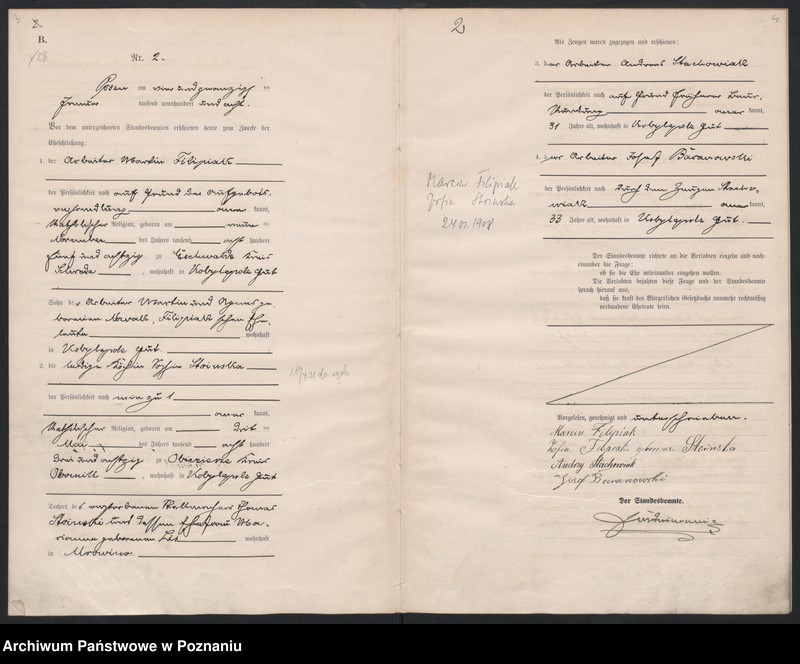 3
2
B.
Nr. 2.
Posen am vier und zwanzigsten
Januar tausend neunhundert und acht.
Vor dem unterzeichneten Standesbeamten erschienen heute zum Zwecke der
Eheschließung:
1. der Arbeiter Martin Filipiak
der Persönlichkeit nach auf Grund der Aufgebots-
verhandlung kannt,
katholischer Religion, geboren am neunten
November des Jahres tausend acht hundert
fünf und achtzig zu Kreis
Schroda, wohnhaft in Kobylepole Gut
Sohn der Arbeiter Martin und Agnes ge-
borenen Nowak, Filipiak'schen Ehe-
leute wohnhaft
in Kobylepole Gut.
2. die ledige Köchin Sophie Stoinska
der Persönlichkeit nach wie zu 1
kannt,
katholischer Religion, geboren am dritten
Mai des Jahres tausend acht hundert
drei und achtzig zu Obiezierze Kreis
Obornik, wohnhaft in Kobylepole Gut
Tochter des verstorbenen Stellmachers Thomas
Stoinski und dessen Ehefrau Ma-
rianna geborenen wohnhaft
in Mrowino.
2
Marcin Filipiak
Zofia Stoinska
24.01.1908
4
Als Zeugen waren zugezogen und erschienen:
3. der Arbeiter Andreas Stachowiak
der Persönlichkeit nach auf Grund früherer Beur-
kundung kannt,
31 Jahre alt, wohnhaft in Kobylepole Gut
4. der Arbeiter Josef Baranowski
der Persönlichkeit nach durch den Zeugen Stacho-
wiak kannt,
33 Jahre alt, wohnhaft in Kobylepole Gut.
Der Standesbeamte richtete an die Verlobten einzeln und nach-
einander die Frage:
ob sie die Ehe miteinander eingehen wollen.
Die Verlobten bejahten diese Frage und der Standesbeamte
sprach hierauf aus,
daß sie kraft des Bürgerlichen Gesetzbuchs nunmehr rechtmäßig
verbundene Eheleute seien.
Vorgelesen, genehmigt und unterschrieben.
Marcin Filipiak
Zofia Filipiak geborene Stoinska
Andrzy Stachowiak
Jozef Baranowski
Der Standesbeamte.
Archiwum Państwowe w Poznaniu